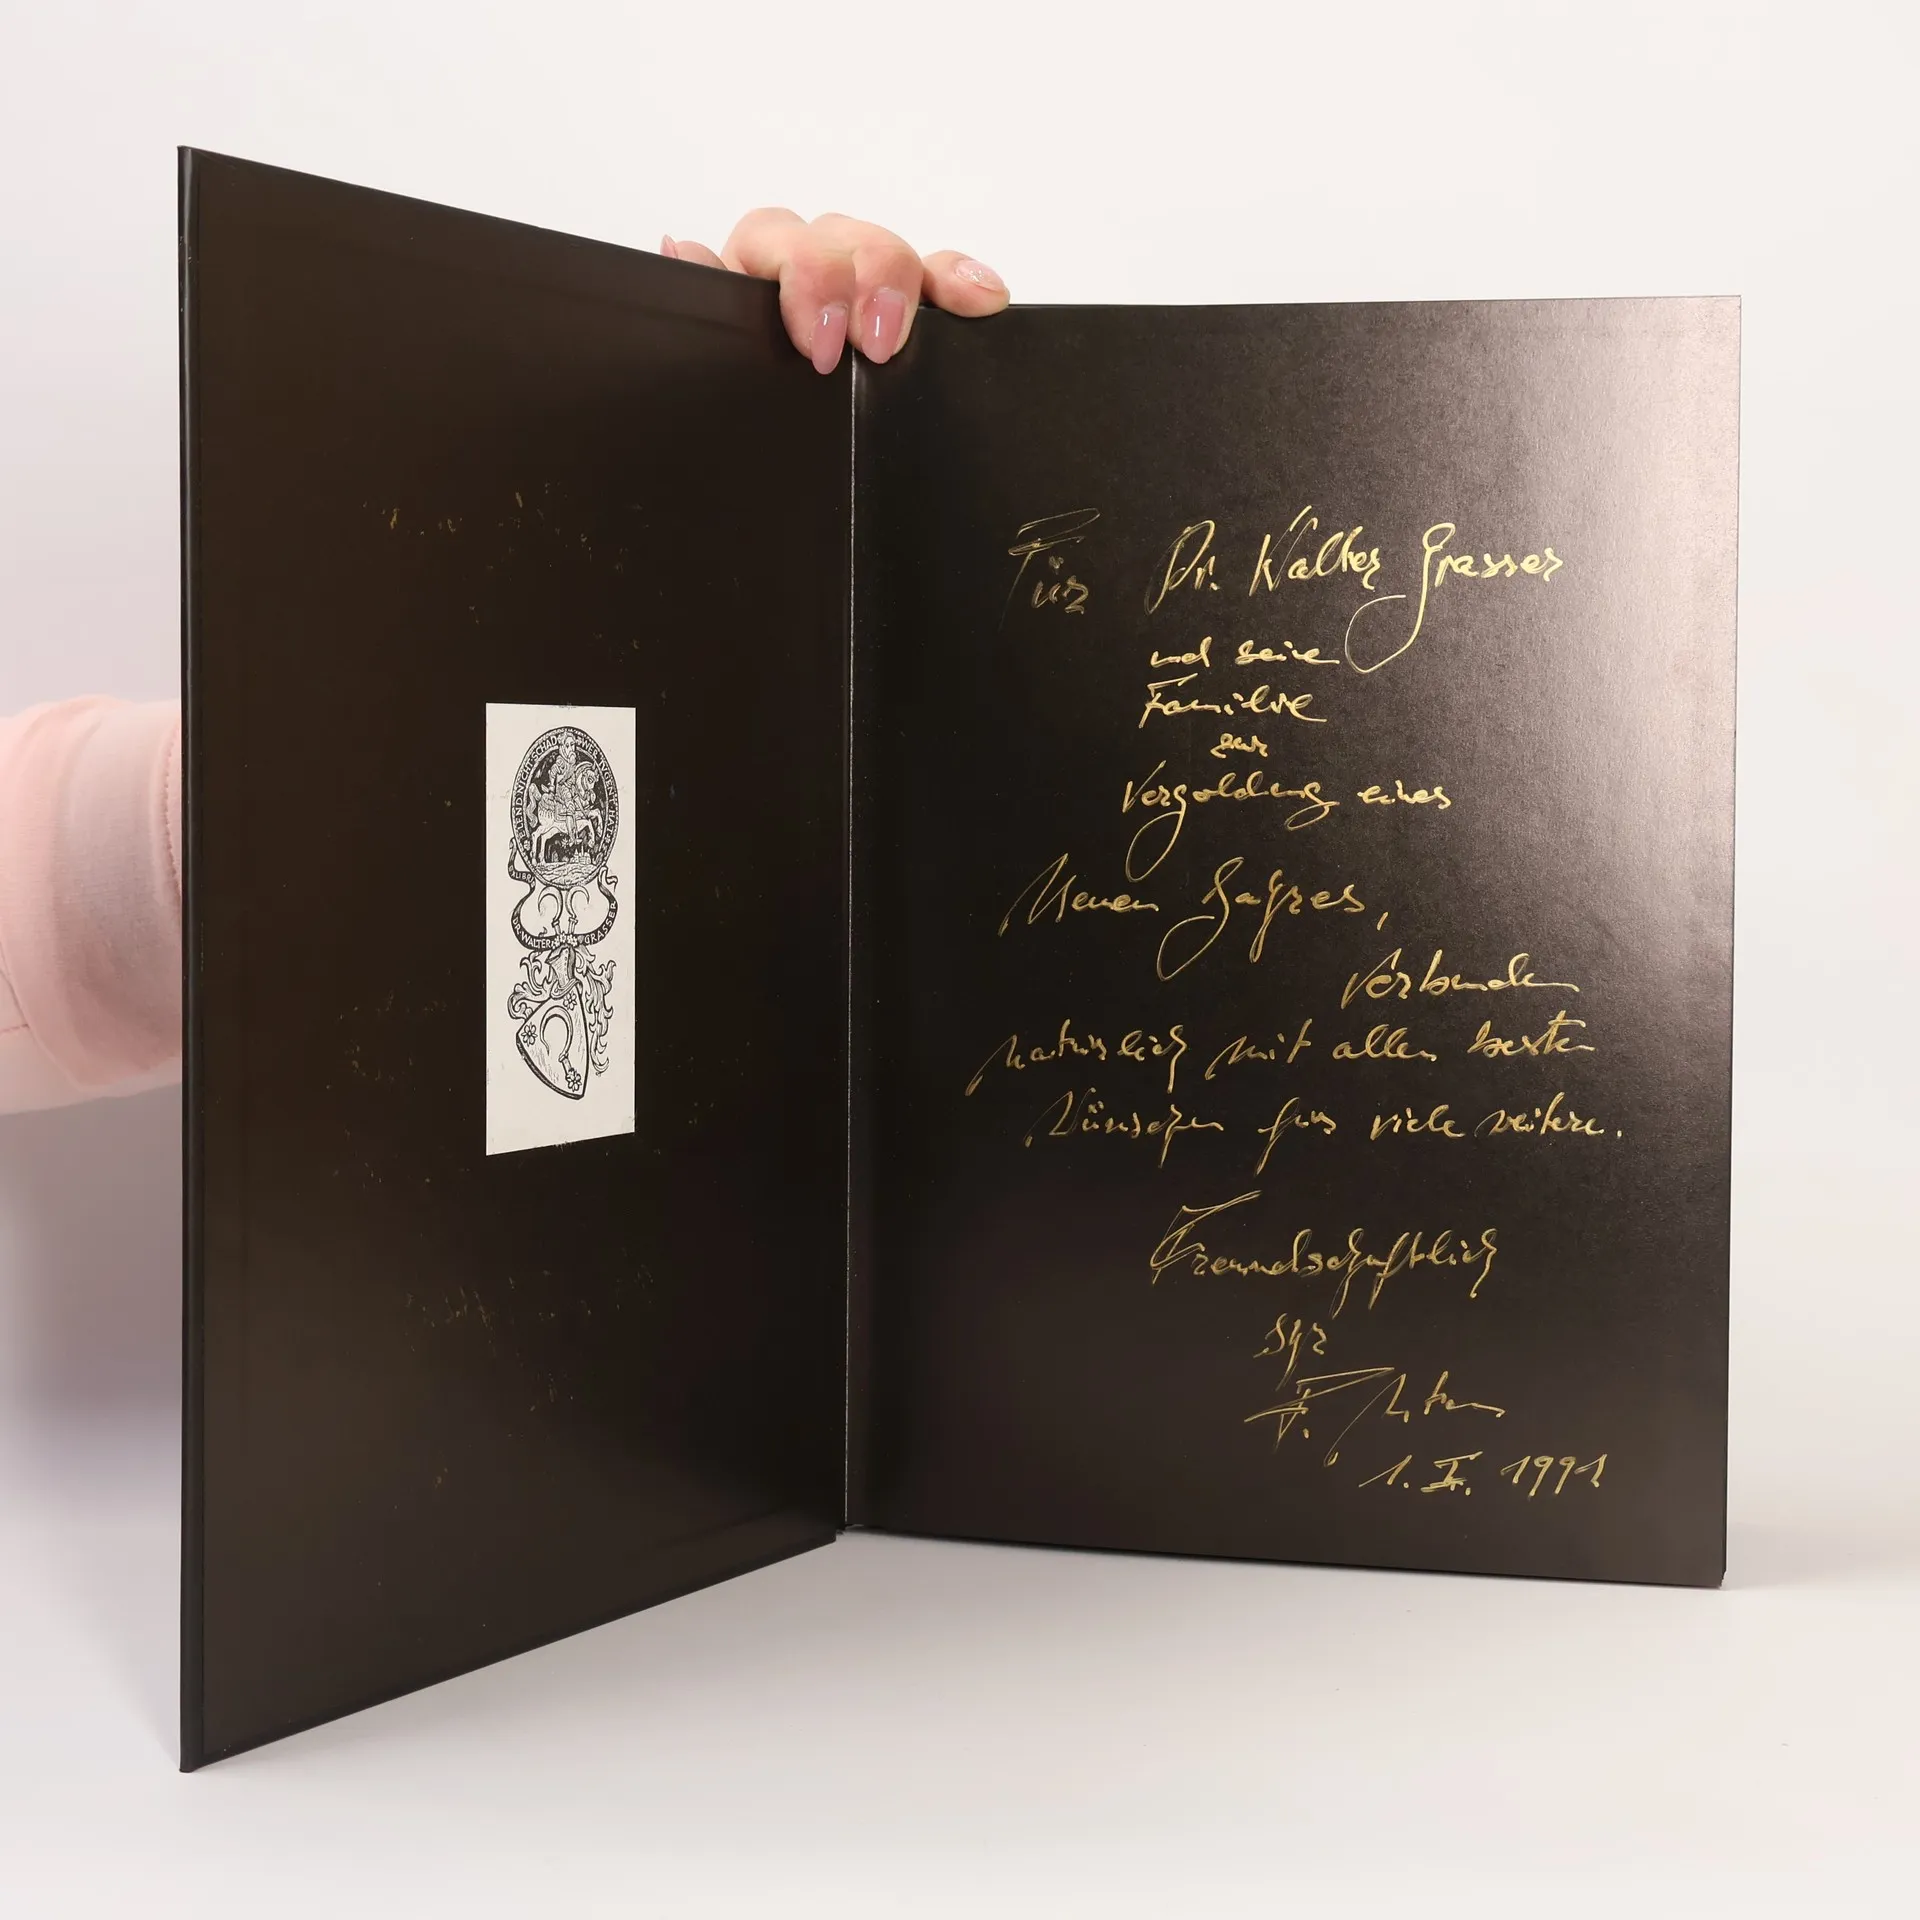 DR. WALTER GRASSER
Für Dr. Walter Grasser
und seine
Familie
zur
Vergoldung eines
Neuen Jahres,
Verbunden
natürlich mit allen besten
Wünschen für viele weitere.
Freundschaftlich
Ihr
F.
1. I. 1991